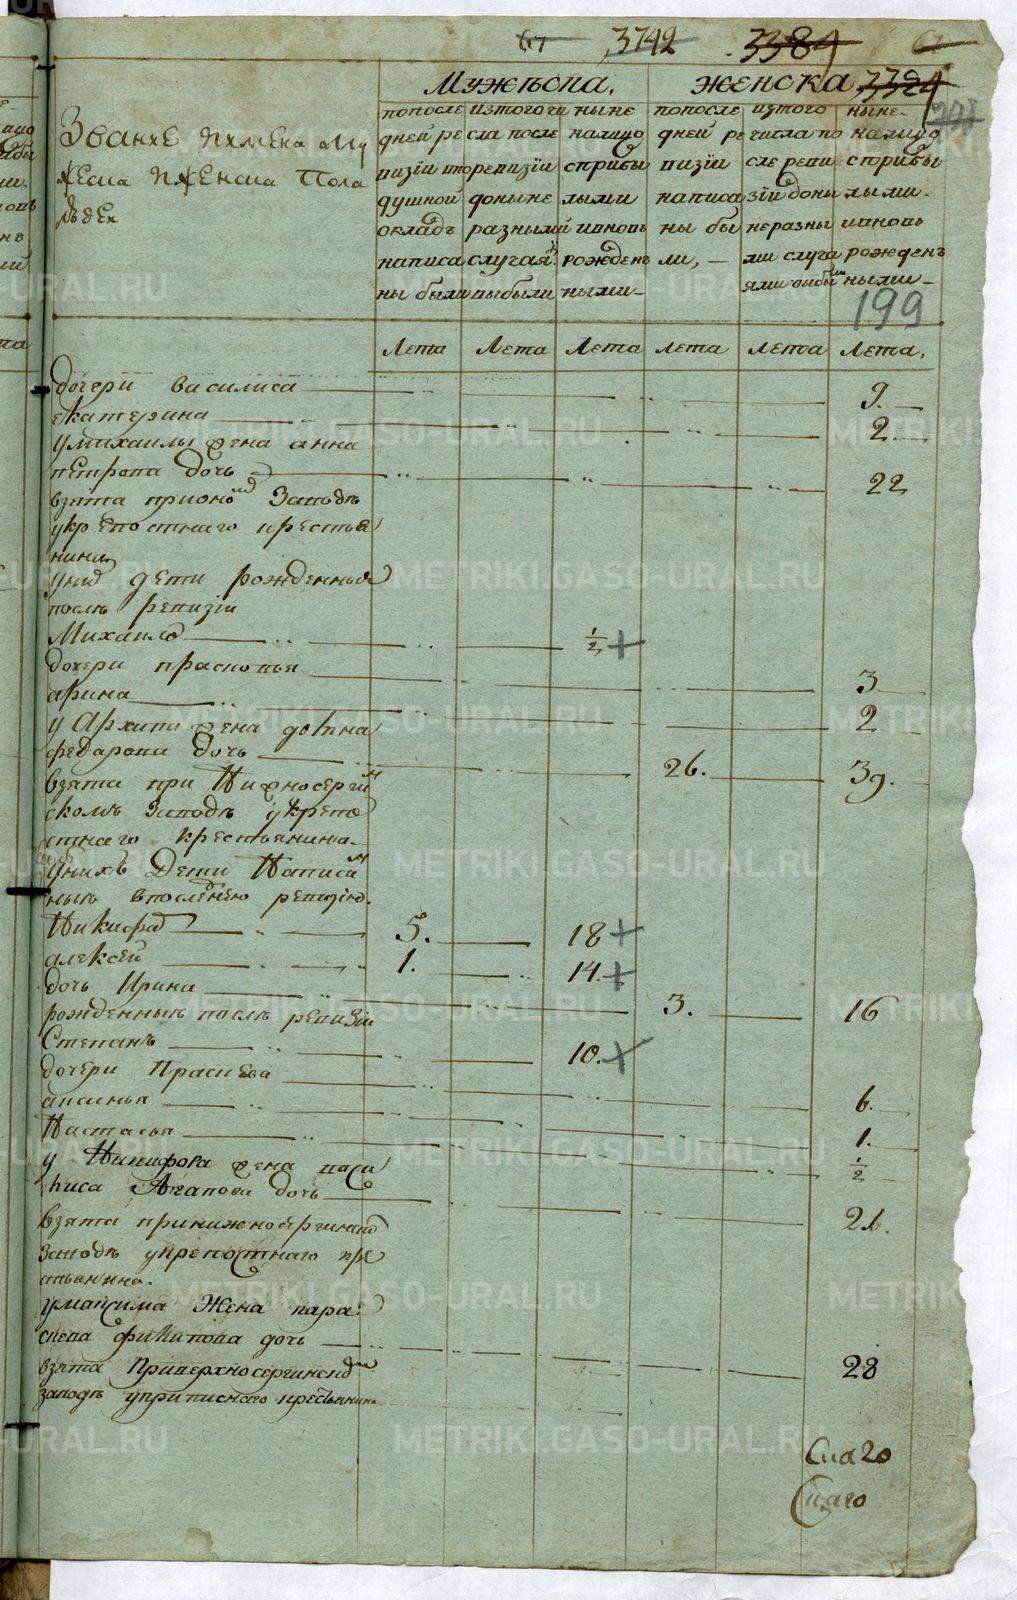 3742 3384
Мужеска, женска 3324
Званiе имена му
жеска женска пола
людех
попосле дней ре визiи душной окладъ написа ны были
изтого числа после ревизiи доныне разными случая выбыли
ныне налицо сприбы лыми ивновь рожден ными
попосле дней ре визiи написа ны бы ли,
изтого числа по сле реви зiи доны не разны ми случа ями выбы
ныне налицо сприбы лыми ивновь рожден ными
199
Лета Лета Лета лета лета Лета,
дочери василиса 9.
екатерина 2.
умихаилы жена анна
петрова дочь 22
взята заводе
укрепостнаго крестья
нина
уних дети рожденныя
после ревизiи
Михаило 1/2
дочери прасковья 3
арина 2
у Архипа жена
федарова дочь 26. 39.
взята при Нижносерги
скомъ заводе укрепо
стнаго крестьянина
унихъ Дети Написа
ныя впоследнею ревизiю.
Никифор 5. 18
алексей 1. 14.
дочь Ирина 3. 16
рожденныя после ревизiи
Степанъ 10.
дочери 6.
аксинья 1.
Настасья 1/2
у Никифора жена васи
лиса Агапова дочь 21.
взята принижносергинском
заводе укрепостнаго кре
стьянина.
умаксима Жена пара
скева филипова дочь 28
взята Приверхносергинском
заводе уприписнаго крестьянина